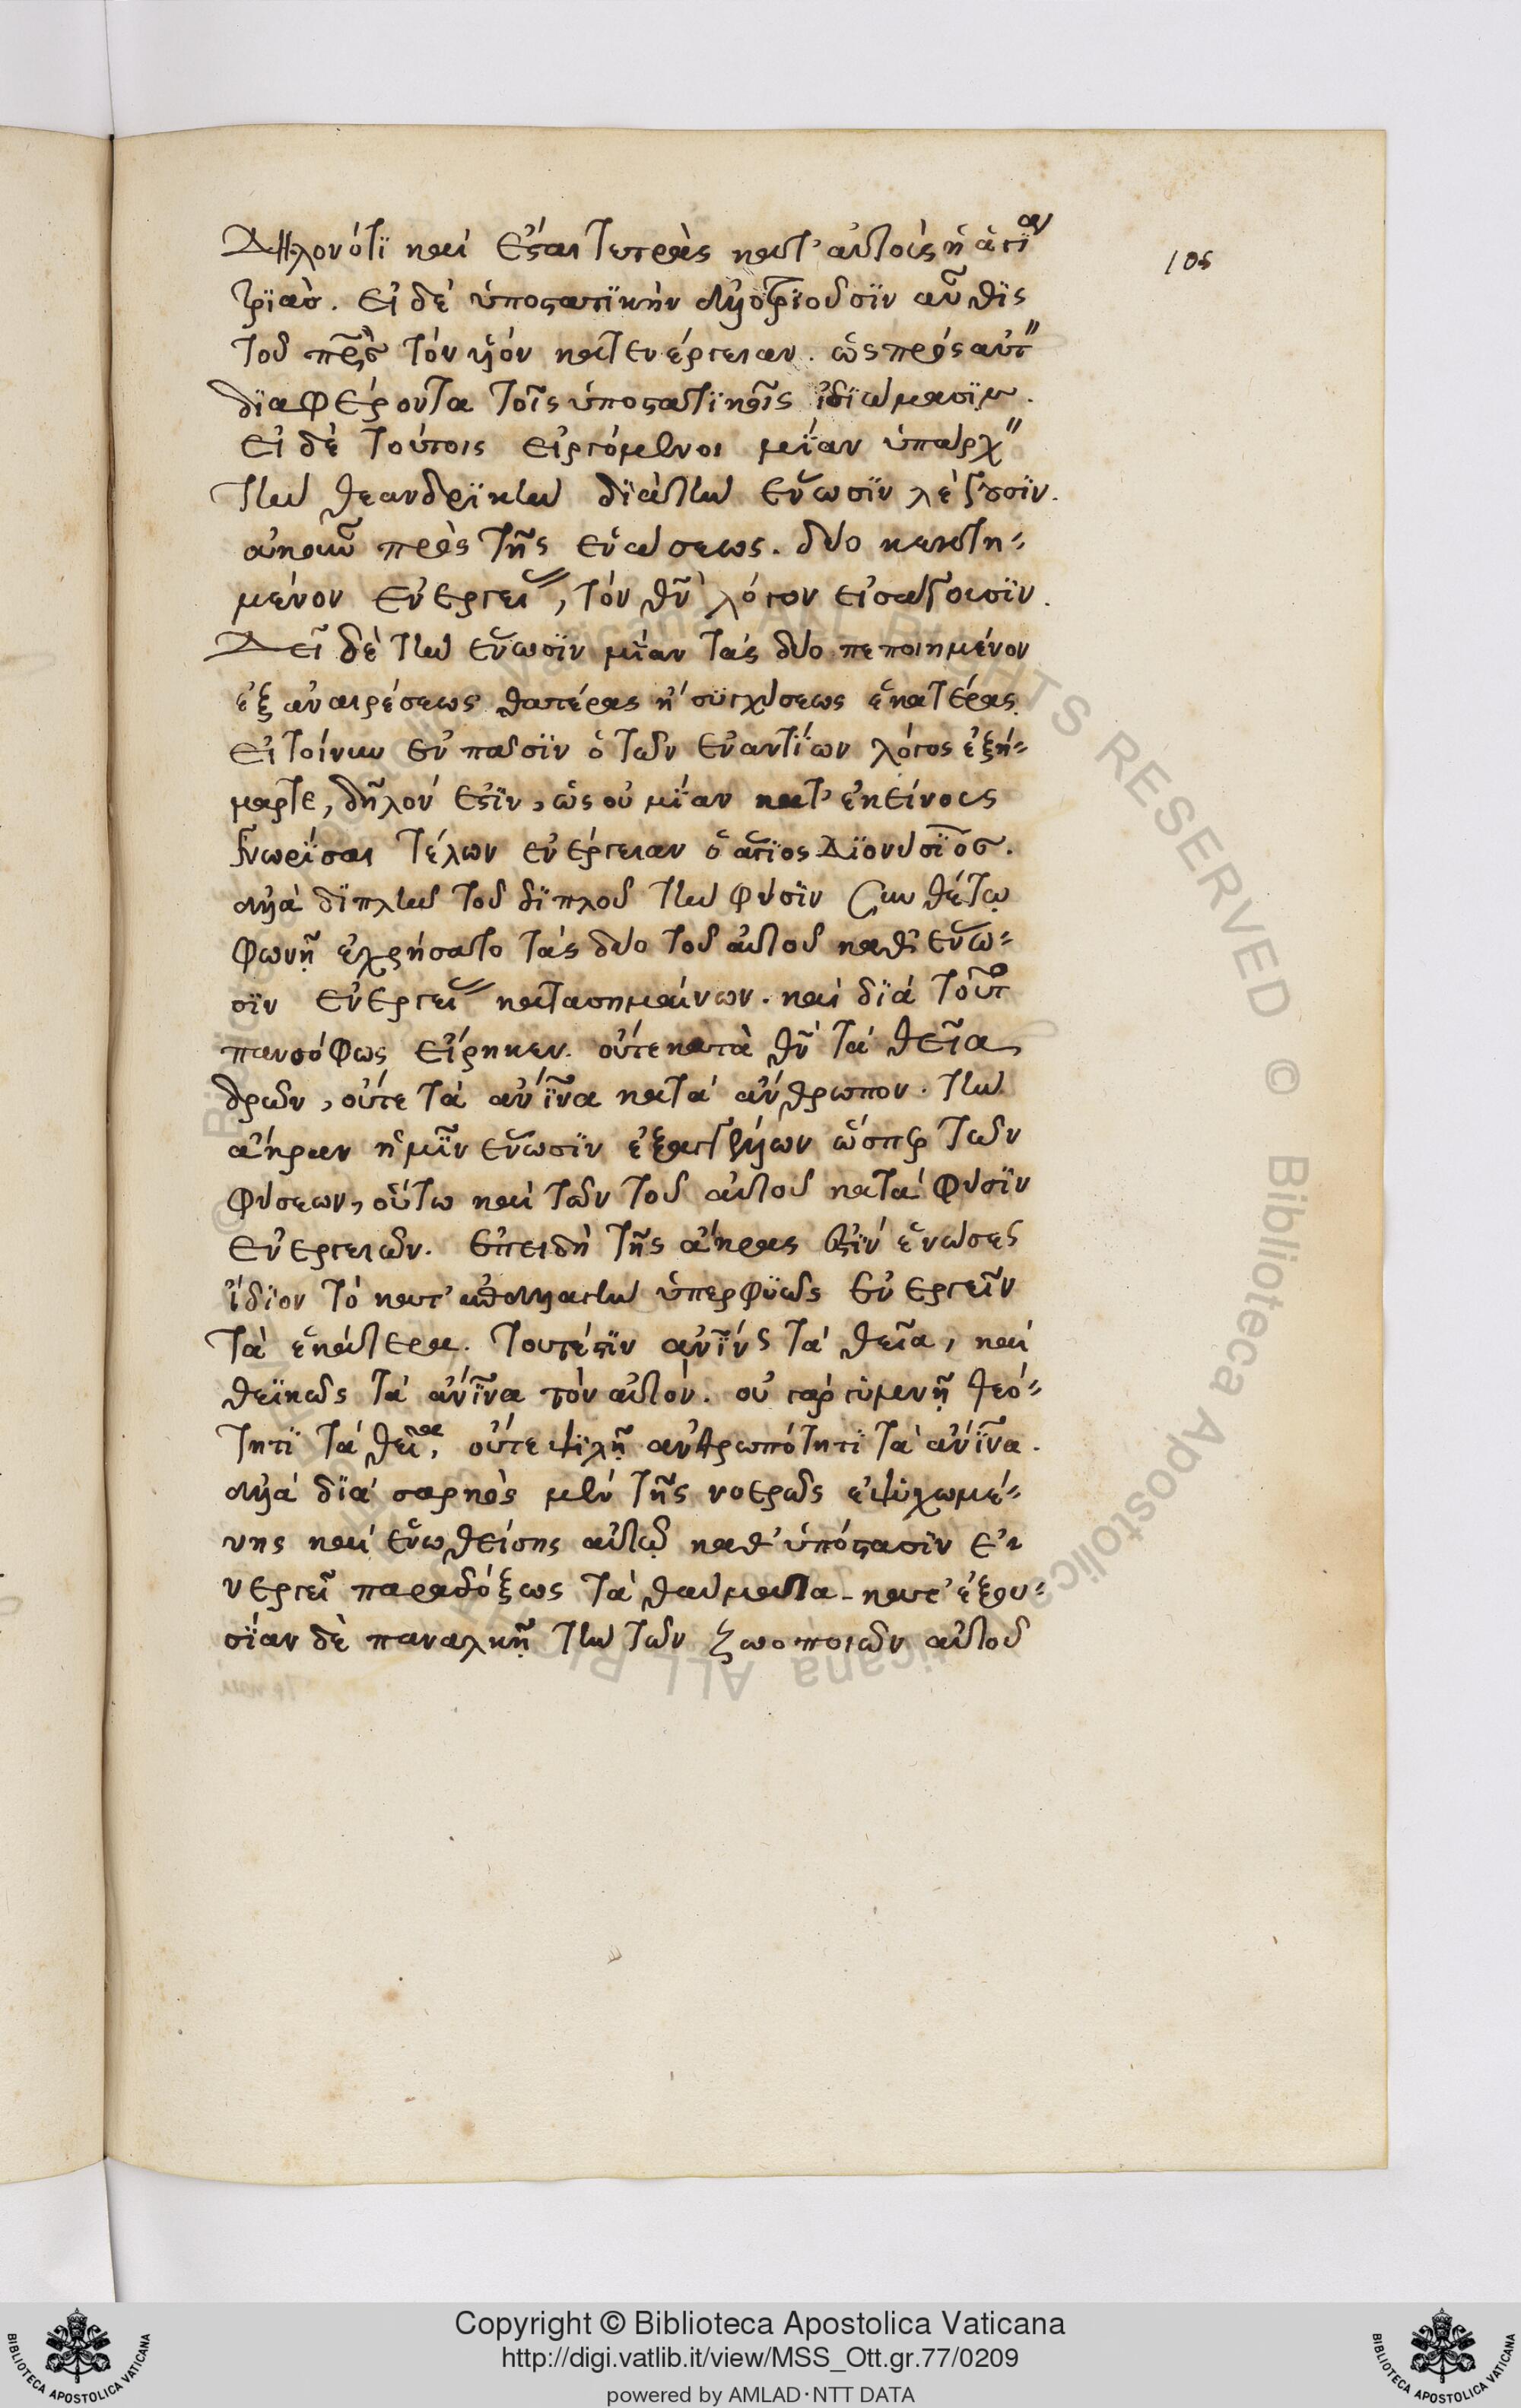 Δηλονότι καὶ ἔσται τετρὰς κατ' αὐτοὺς ἡ ἁγία
τριάσ. εἰ δὲ ὑποστατικὴν ἀλλοτριοῦσιν αὖθις
τοῦ πρσ τὸν υἱὸν κατ ενέργειαν. ὡς πρὸς αὐτ
διαφέροντα τοῖς ὑποστατικοῖς ἰδιώμασιν.
εἰ δὲ τούτοις εἰργόμενοι μίαν ὑπάρχ
τὴν θεανδρικὴν διὰ τὴν ἕνωσιν λέγουσιν.
οὐκοῦν πρὸς τῆς ἑνώσεως. δύο κεκτη-
μένον ἐνεργεί, τὸν θν λόγον εἰσάγουσιν.
Δεῖ δὲ τὴν ἕνωσιν μίαν τὰς δύο πεποιημένον
ἐξ ἀναιρέσεως θατέρας ἢ συγχύσεως ἑκατέρας.
εἰ τοίνυν ἐν πᾶσιν ὁ τῶν ἐναντίων λόγος ἐξή-
μαρτε, δῆλόν ἐστιν, ὡς οὐ μίαν κατ' ἐκείνους
γνωρίσαι τέλων ἐνέργειαν ὁ ἅγιος Διονύσιος.
ἀλλὰ διπλὴν τοῦ διπλοῦ τὴν φύσιν συνθέτῳ
φωνῇ ἐχρήσατο τὰς δύο τοῦ αὐτοῦ καθ' ἕνω-
σιν ἐνεργεί κατασημαίνων. καὶ διὰ τοῦτο
πανσόφως εἴρηκεν. οὔτε κατὰ θν τὰ θεῖα
δρῶν, οὔτε τὰ ἀνινα κατὰ ἄνθρωπον. τὴν
ἄκραν ἡμῖν ἕνωσιν ἐξαγγέλλων ὥσπερ τῶν
φύσεων, οὕτω καὶ τῶν τοῦ αὐτοῦ κατὰ φύσιν
ἐνεργειῶν. ἐπειδὴ τῆς ἄκρας ἐστὶν ἑνώσεως
ἴδιον τὸ κατ' ἀπαλλαγὴν ὑπερφυῶς ἐνεργεῖν
τὰ ἑκάτερα. τουτέστιν ἀνινς τὰ θεῖα, καὶ
θεϊκῶς τὰ ἀνινα τὸν αὐτόν. οὐ γὰρ γυμνῇ θεό-
τητι τὰ θεῖα, οὔτε ψιλῇ ἀνθρωπότητι τὰ ἀνινα.
ἀλλὰ διὰ σαρκὸς μὲν τῆς νοερῶς ἐψυχωμέ-
νης καὶ ἑνωθείσης αὐτῷ καθ' ὑπόστασιν ἐ-
νεργεῖ παραδόξως τὰ θαύματα. κατ' ἐξου-
σίαν δὲ παναλκῆ τὴν τῶν ζωοποιῶν αὐτοῦ
105
Copyright © Biblioteca Apostolica Vaticana
http://digi.vatlib.it/view/MSS_Ott.gr.77/0209
powered by AMLAD·NTT DATA